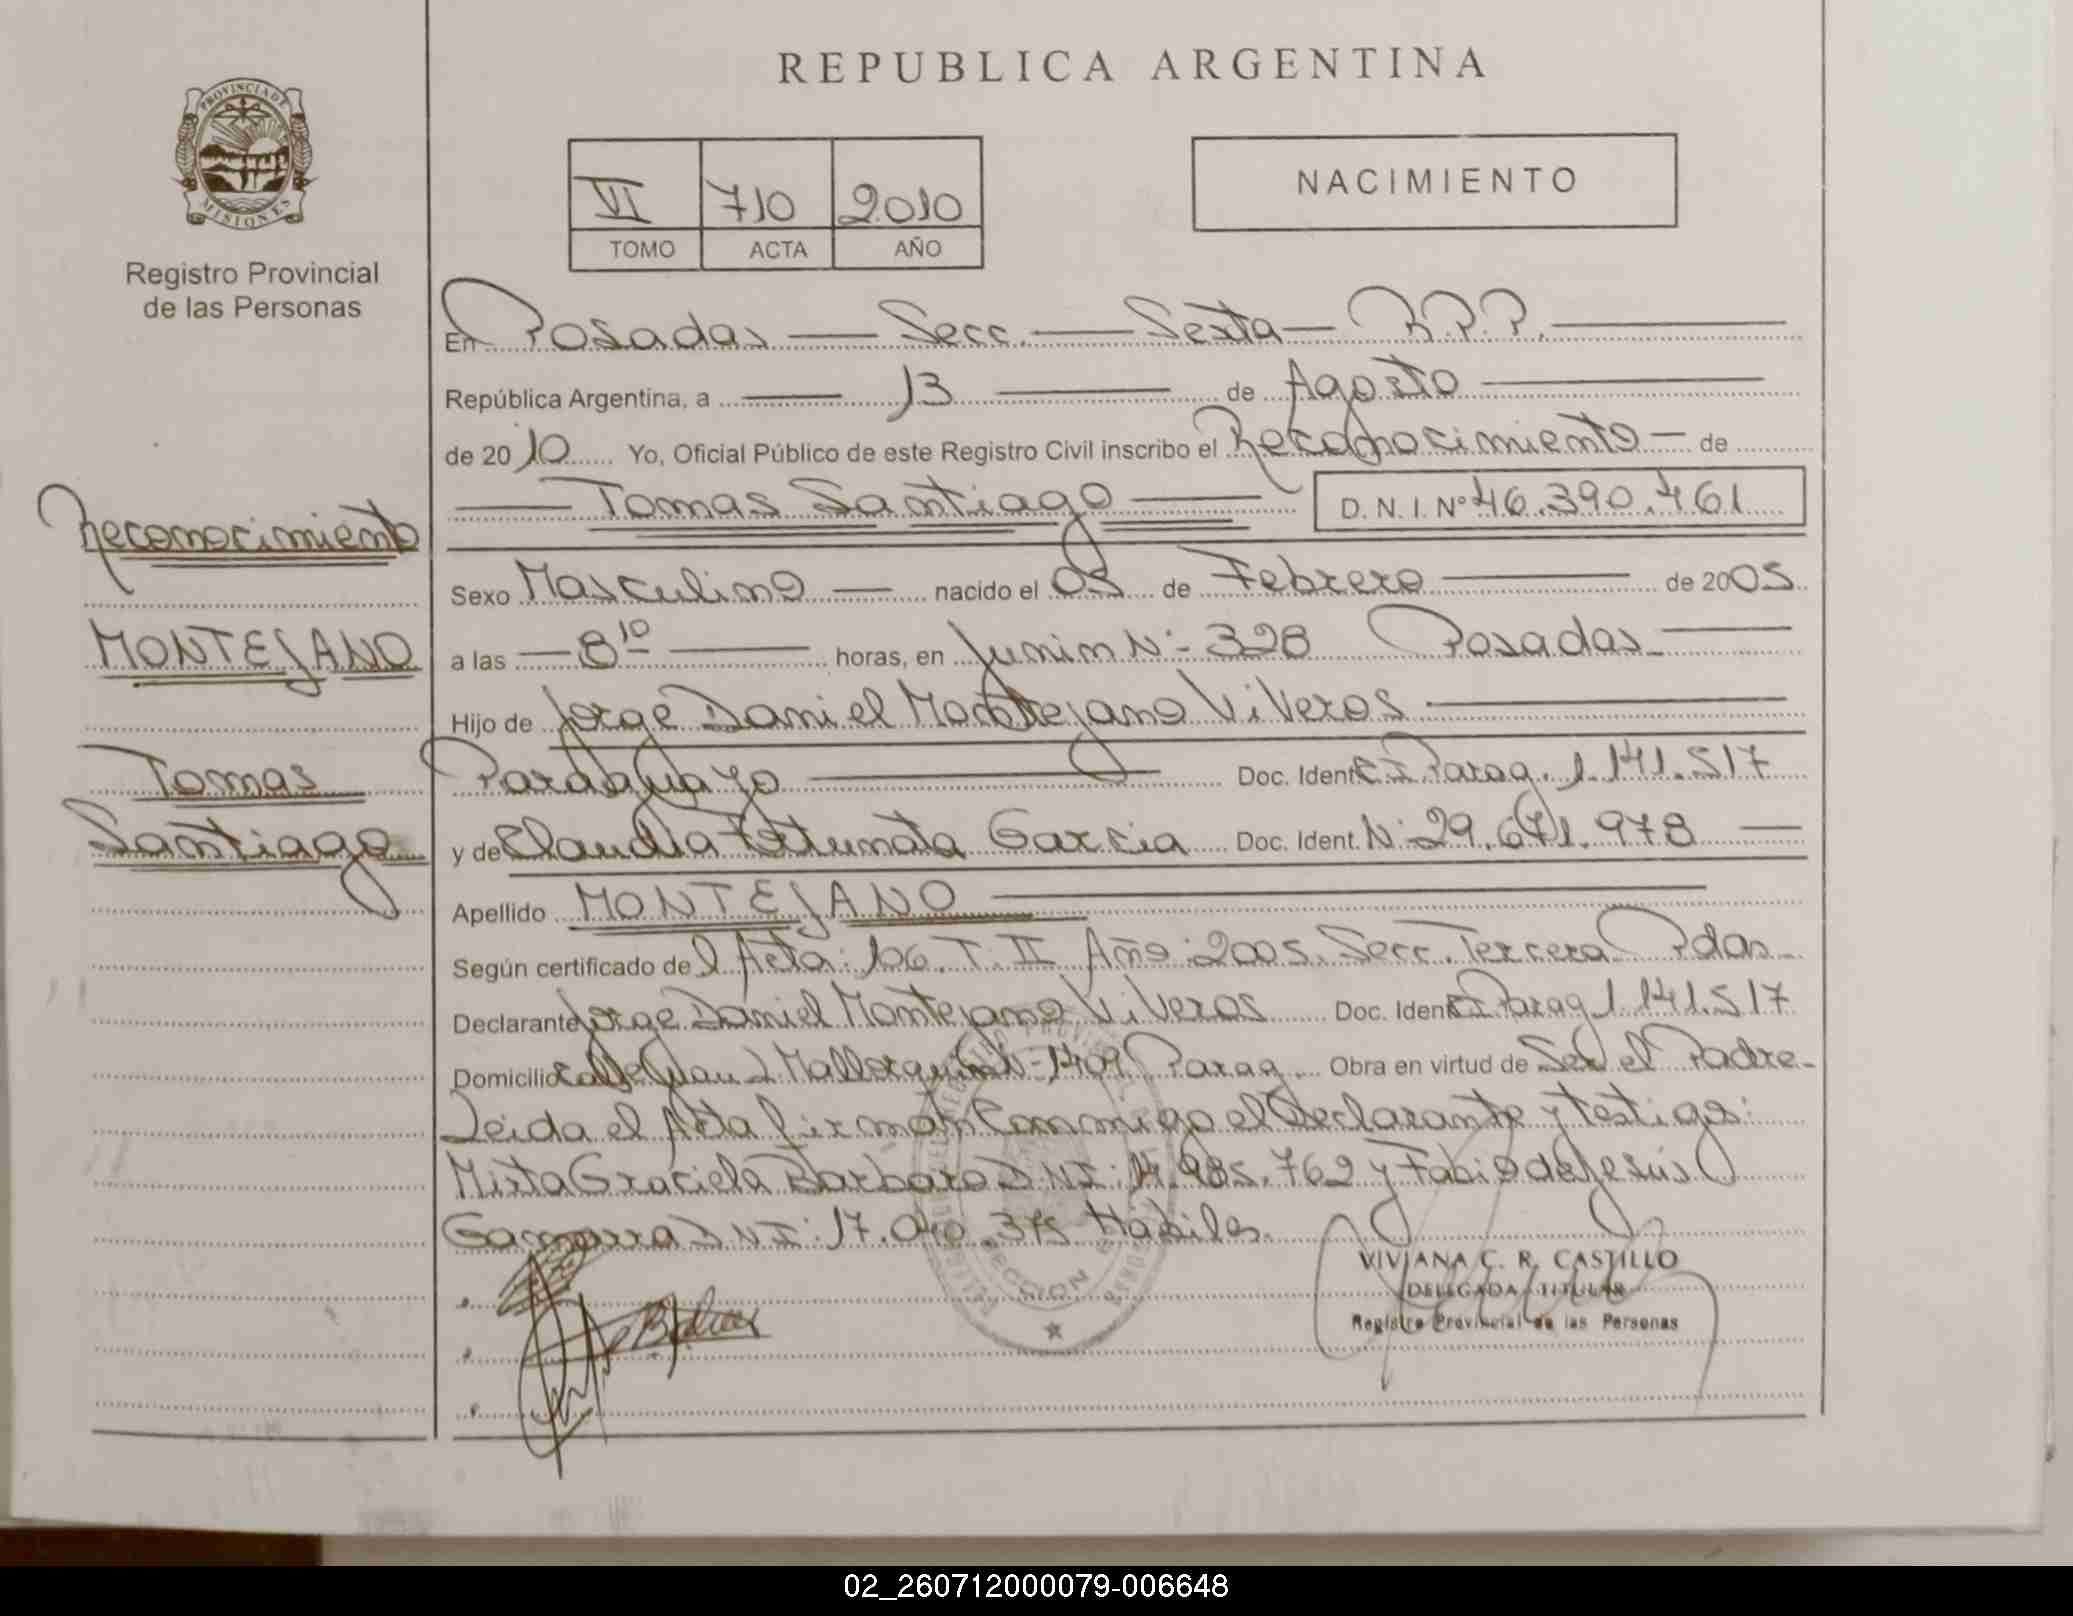 REPUBLICA ARGENTINA
PROVINCIA DE
MISIONES
Registro Provincial
de las Personas
VI 710 2010
TOMO ACTA AÑO
NACIMIENTO
En Posadas — Secc. — Sexta — R.P.P.
República Argentina, a — 13 — de Agosto
de 2010 Yo, Oficial Público de este Registro Civil inscribo el Reconocimiento — de
Tomas Santiago D.N.I. Nº 46.390.461
Reconocimiento
Sexo Masculino — nacido el 05 de Febrero — de 2005
MONTEJANO
a las — 8 10 — horas, en Junin Nº 328 Posadas —
Hijo de Jorge Daniel Montejano ViVeros
Tomas
Paraguayo — Doc. Ident. C I Parag. 1.141.517
Santiago
y de Claudia Fortunata Garcia Doc. Ident. Nº 29.671.978 —
Apellido MONTEJANO
Según certificado del Acta: 106. T. II Año: 2005. Secc. Tercera Pdas —
Declarante Jorge Daniel Montejano ViVeros Doc. Ident. CI Parag 1.141.517
Domicilio Calle Juan L Mallorquin Nº 1409 Parag. Obra en virtud de Ser el Padre -
Leida el Acta firman Conmigo el Declarante y testigos:
Mirta Graciela Barbaro DNI: 14.985.762 y Fabio de Jesús
Gamarra DNI: 17.040.375 Habiles.
SECCION
VIVIANA C. R. CASTILLO
DELEGADA TITULAR
Registro Provincial de las Personas
02_260712000079-006648